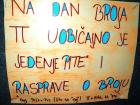 NA DAN BROJA
π UOBIČAJNO JE
JEDENJE PITE I
RASPRAVE O BROJU